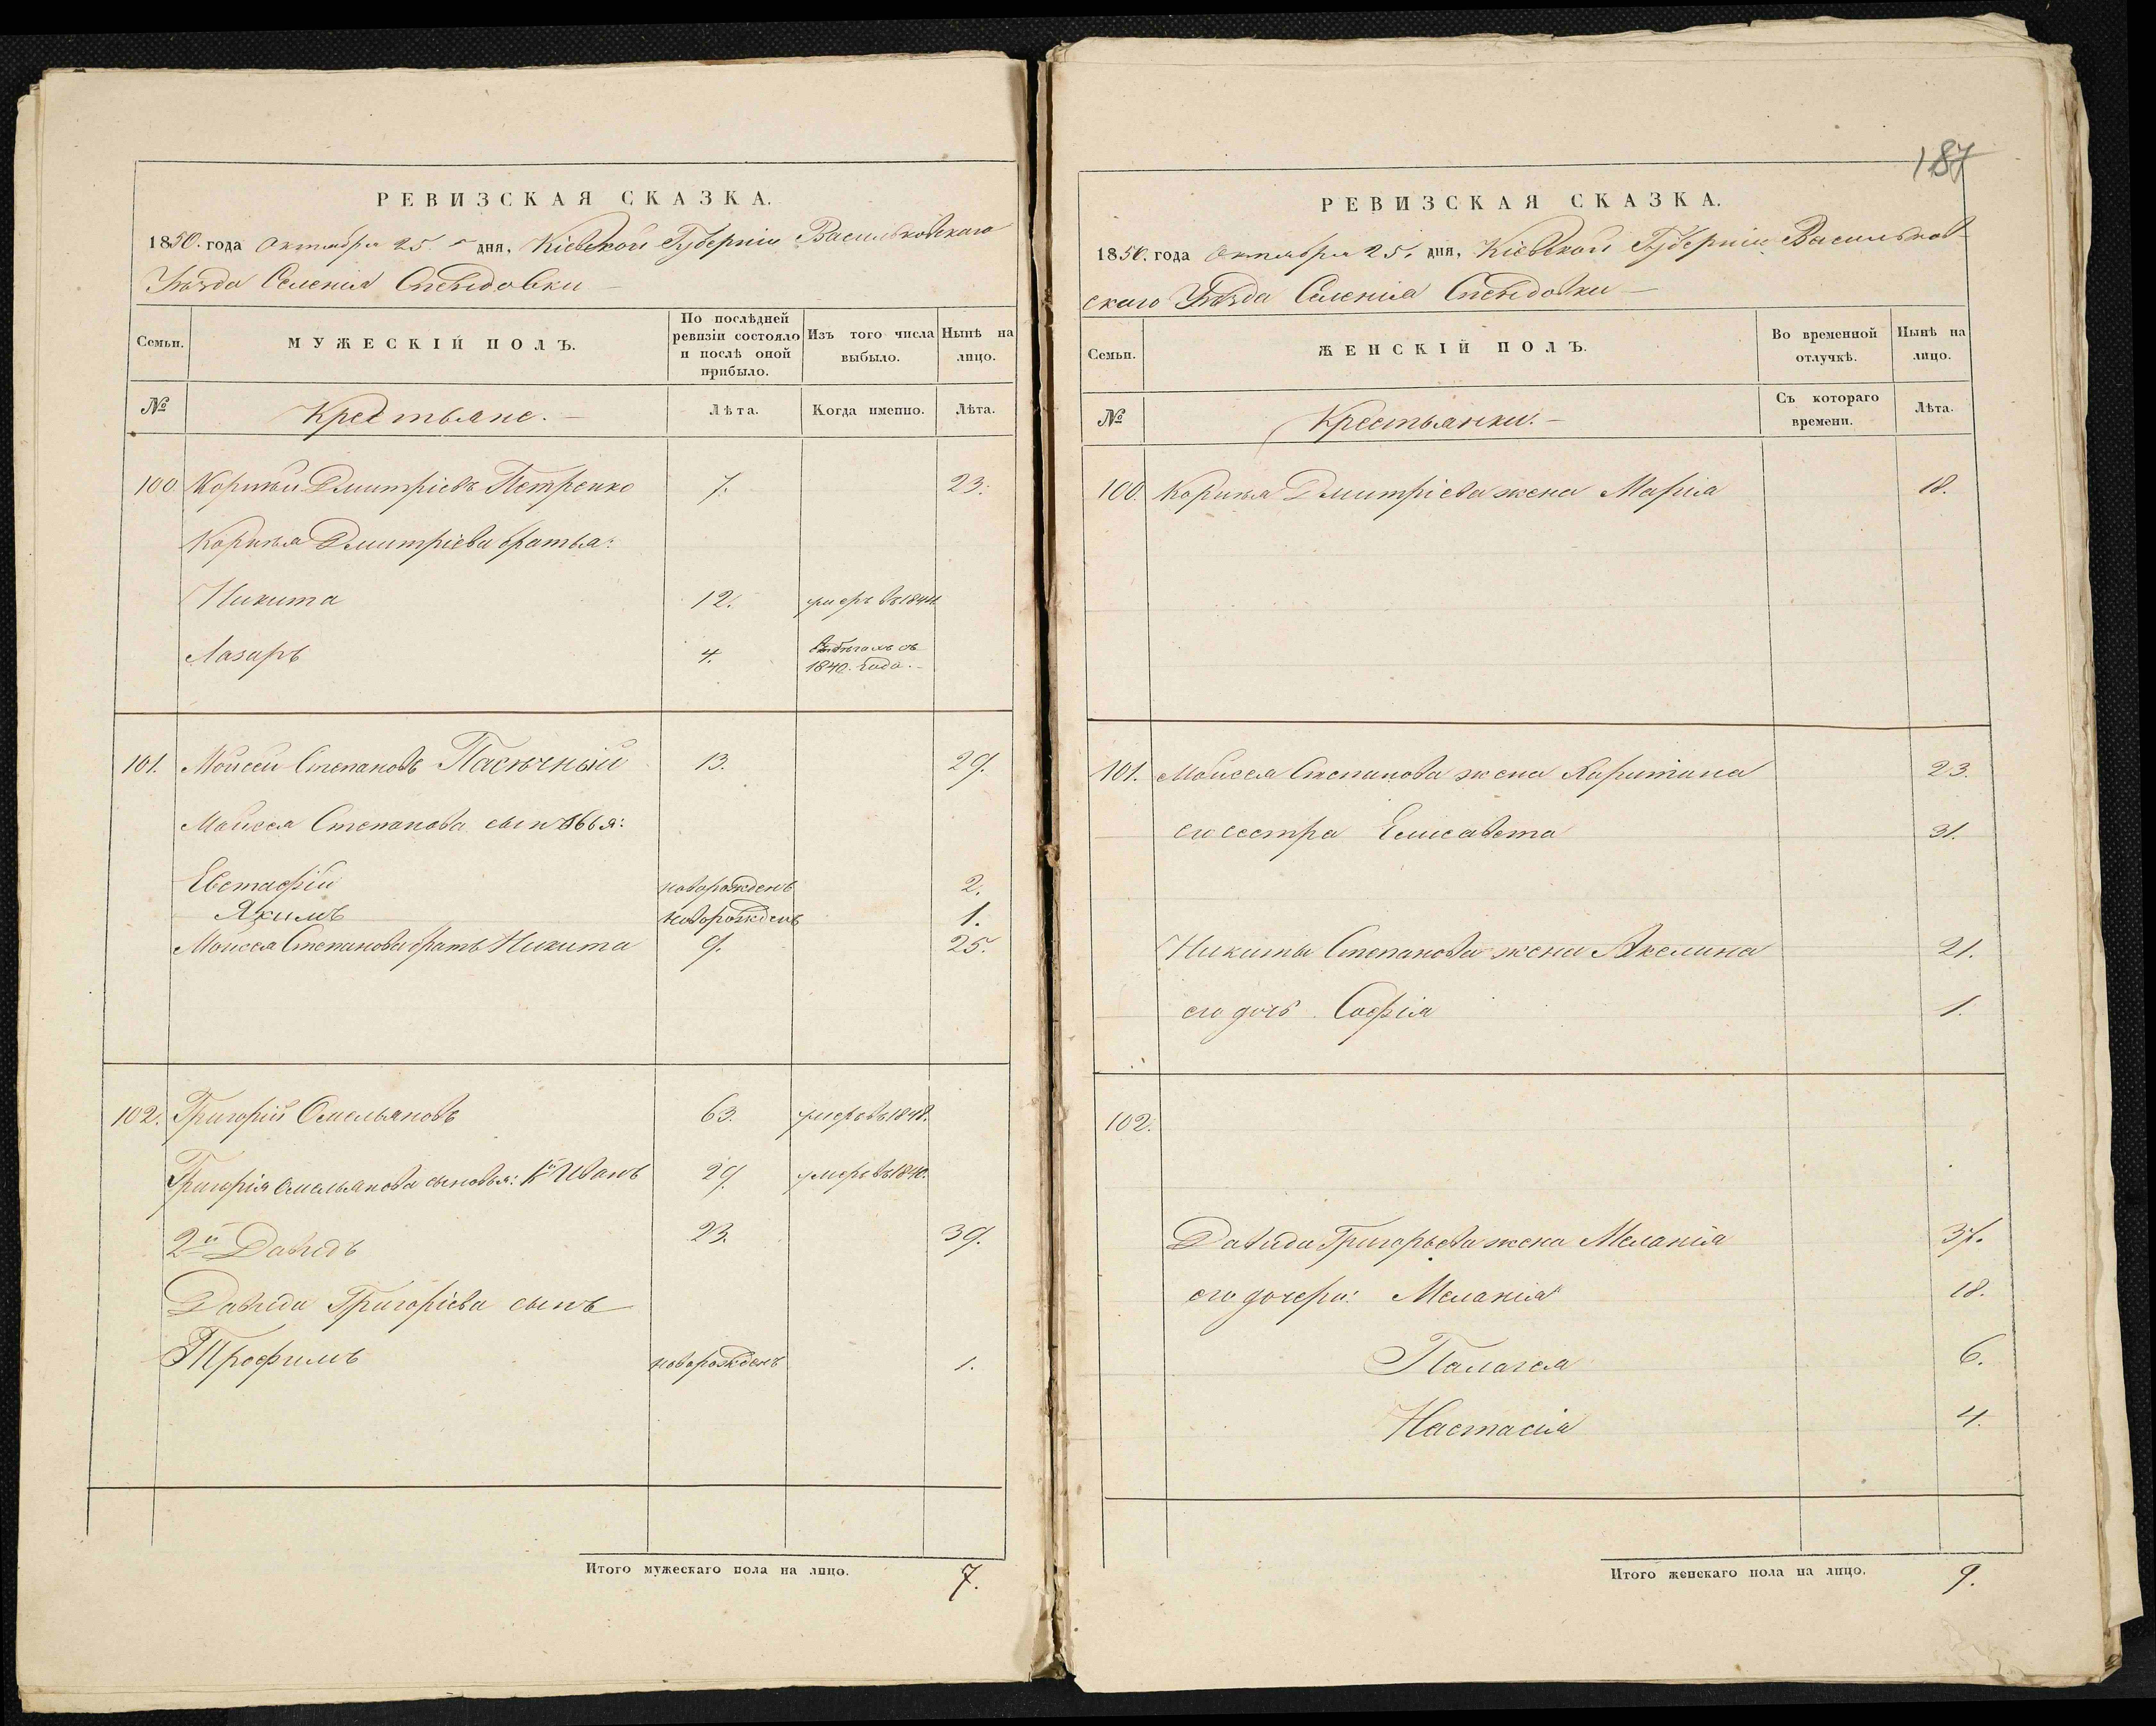 РЕВИЗСКАЯ СКАЗКА.
1850. года Октября 25 дня, Кіевской Губерніи Васильковскаго
Уѣзда Селенія
Семьи.
МУЖЕСКІЙ ПОЛЪ.
По послѣдней ревизіи состояло и послѣ оной прибыло.
Изъ того числа выбыло.
Нынѣ на лицо.
№
Крестьяне.
Лѣта.
Когда именно.
Лѣта.
100. Корнѣй Дмитріевъ Петренко 7. 23.
Корнѣя Дмитріева братья:
Никита 12. умеръ въ 1844.
Лазарь 4. 1840. года.
101. Моисей Степановъ Пасѣчный 13. 29.
Моисея Степанова сыновья:
Евстафій новорожденъ 2.
Якимъ новорожденъ 1.
Моисея Степанова братъ Никита 9. 25.
102. Григорій Омельяновъ 63. умеръ въ 1848.
Григорія Омельянова сыновья: 1й Иванъ 29. умеръ въ 1840.
2й Давидъ 23. 39.
Давида Григоріева сынъ
Трофимъ новорожденъ 1.
Итого мужескаго пола на лицо. 7.
187
РЕВИЗСКАЯ СКАЗКА.
1850. года Октября 25. дня, Кіевской Губерніи Васильков-
скаго Уѣзда Селенія
Семьи.
ЖЕНСКІЙ ПОЛЪ.
Во временной отлучкѣ.
Нынѣ на лицо.
№
Крестьянки.
Съ котораго времени.
Лѣта.
100. Корнѣя Дмитріева жена Марія 18.
101. Моисея Степанова жена Харитина 23.
его сестра Елисавета 31.
Никиты Степанова жена Акелина 21.
его дочь Софія 1.
102.
Давида Григорьева жена Меланія 37.
его дочери: Меланія 18.
Палагея 6.
Настасія 4.
Итого женскаго пола на лицо. 9.